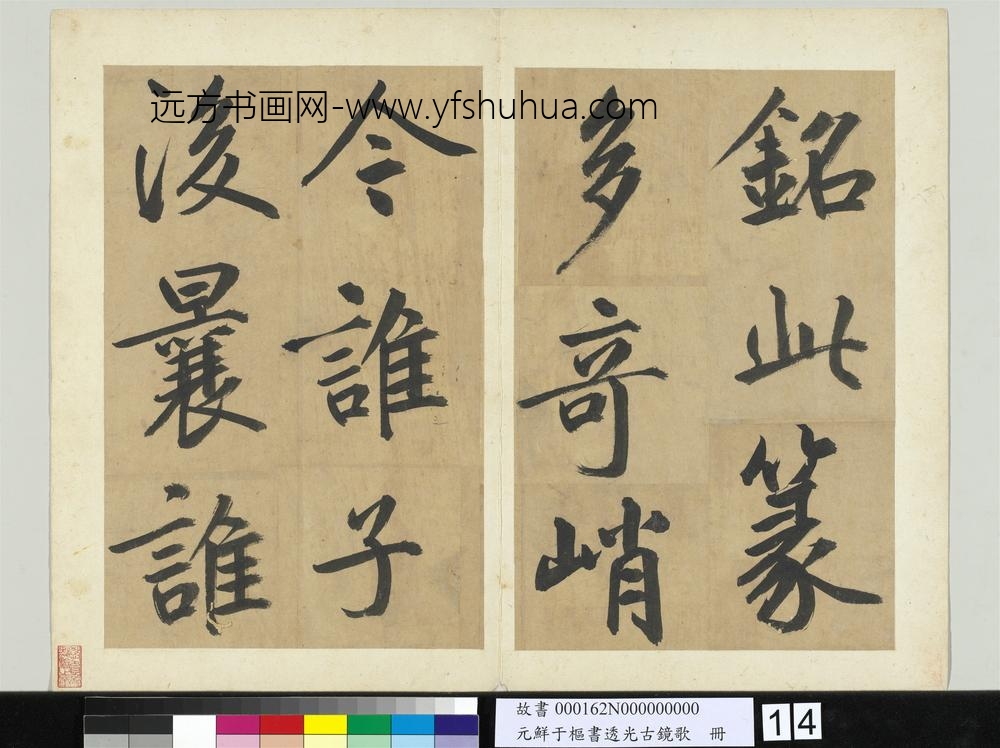 远方书画网-www.yfshuhua.com
銘此篆
多竒峭
今誰子
後曩誰
故書 000162N000000000
元鮮于樞書透光古鏡歌 冊
14